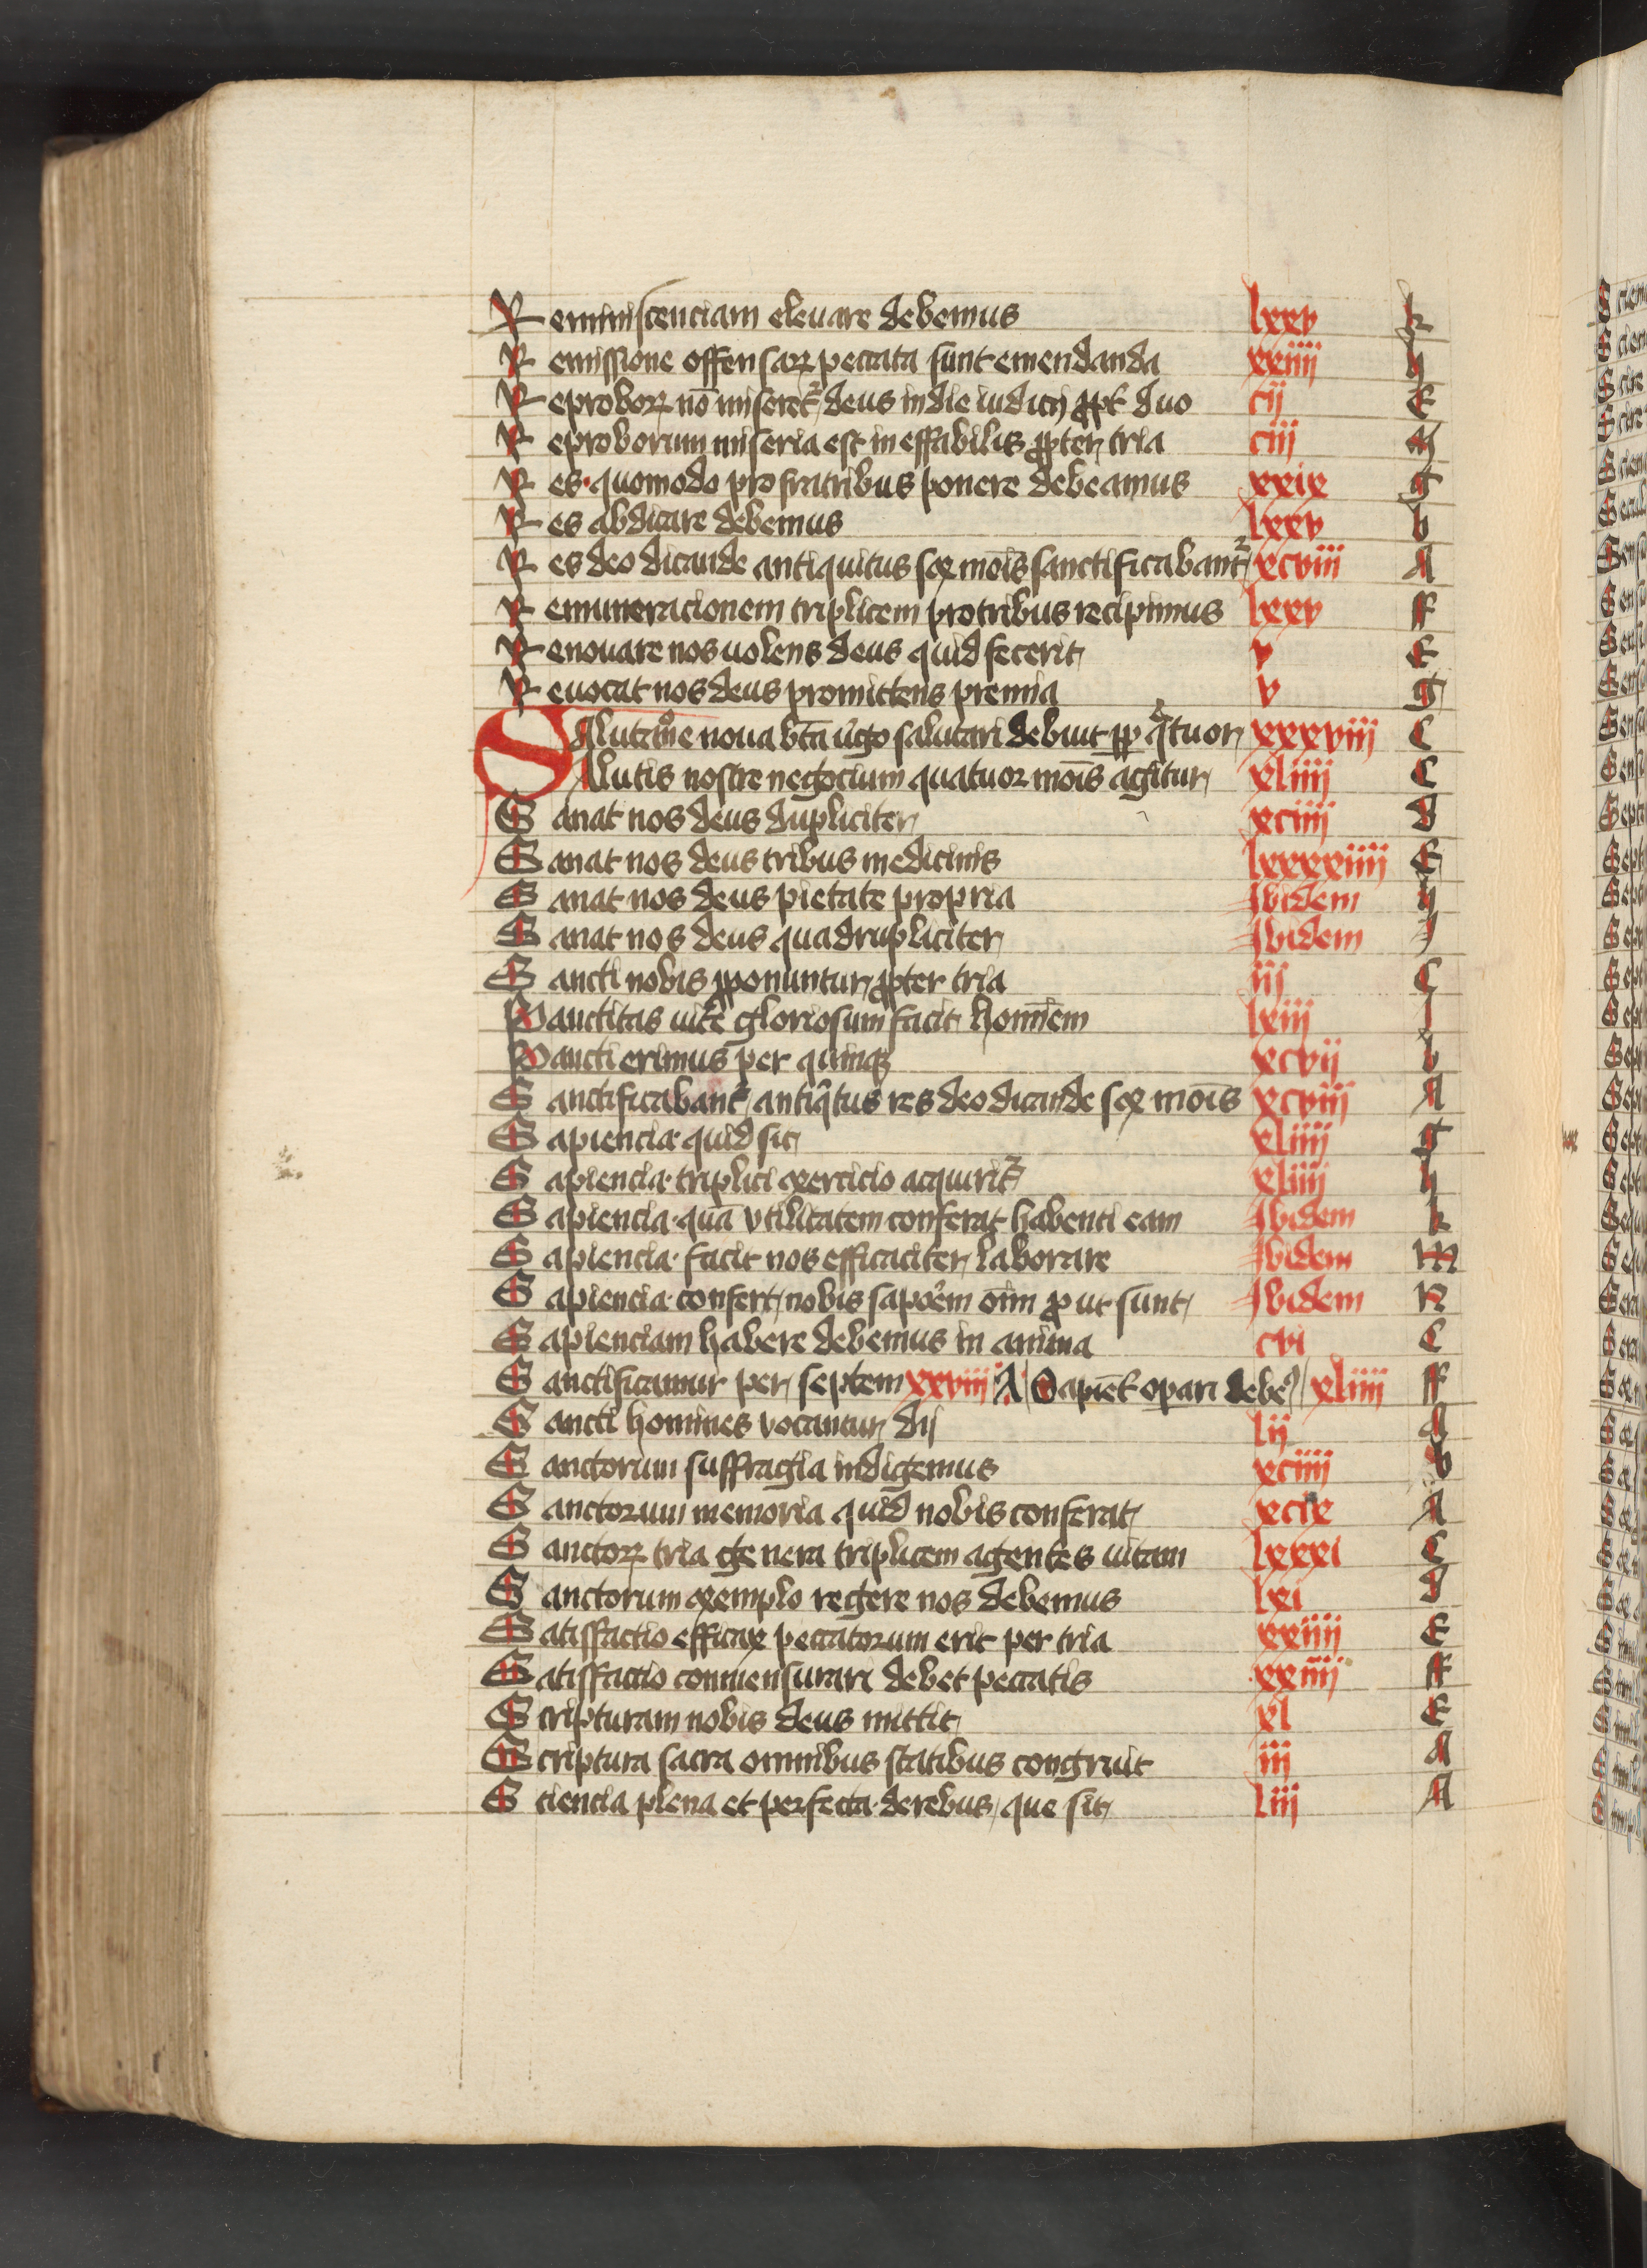 Reminiscenciam elevare debemus lxxv k
Remissione offensarꝝ peccata sunt emendanda xxiiii h
Reproborꝝ nō miseret᷑ deus in die iudicij ꝓpt̄ duo cij E
Reproborum miseria est ineffabilis ꝓpter tria ciij M
Res quomodo pro fratribus ponere debeamus xxix g
Res abdicare debemus lxxv b
Res deo dicande antiquitus sex mōis sanctificabant᷑ xcviii A
Remuneracionem triplicem pro tribus recipimus lxxv ff
Renouare nos uolens deus quid fecerit v E
Reuocat nos deus promittens premia v g
Salutac̄o͞e noua bt̄a ūgo salutari debuit ꝓp qͣtuor xxxviii C
Salutis nostre negocium quatuor mōis agitur xliiii C
Sanat nos deus dupliciter xciiii D
Sanat nos deus tribus medicinis lxxxxiiii E
Sanat nos deus pietate propria Ibidem h
Sanat nos deus quadrupliciter Ibidem J
Sancti nobis ꝓponuntur ꝓpter tria iij C
Sanctitas uite gloriosum facit hominem lxiij J
Sancti erimus per quinqꝫ xcvij b
Sanctificabant᷑ antiqͥtus res deo dicande sex mōis xcviij A
Sapiencia quid sit xliiii g
Sapiencia triplici exercicio acquirit᷑ xliiii h
Sapiencia quā vtilitatem conferat habenti eam Ibidem k
Sapiencia facit nos efficaciter laborare Ibidem M
Sapiencia confert nobis sapoꝛem oīm ꝓut sunt Ibidem N
Sapienciam habere debemus in anima cvi C
Sanctificamur per septem xxviii A Sapient̄ opari debeꝰ xliiii ff
Sancti homines vocantur dij lij A
Sanctorum suffragia indigemus xciiii b
Sanctorum memoria quid nobis conferat xcix A
Sanctorꝝ tria genera triplicem agentes uitam lxxxi C
Sanctorum exemplo regere nos debemus lxi D
Satisfactio efficax peccatorum erit per tria xxiiii E
Satisfactio conmensurari debet peccatis xxiiii ff
Scripturam nobis deus mittit xl E
Scriptura sacra omnibus statibus congruit iij A
Sciencia plena et perfecta de rebus que sit liij A